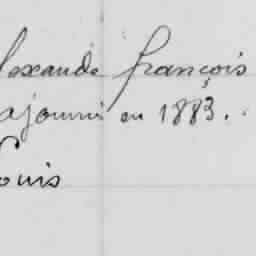 lexande françois
ajourné en 1883.
ouis